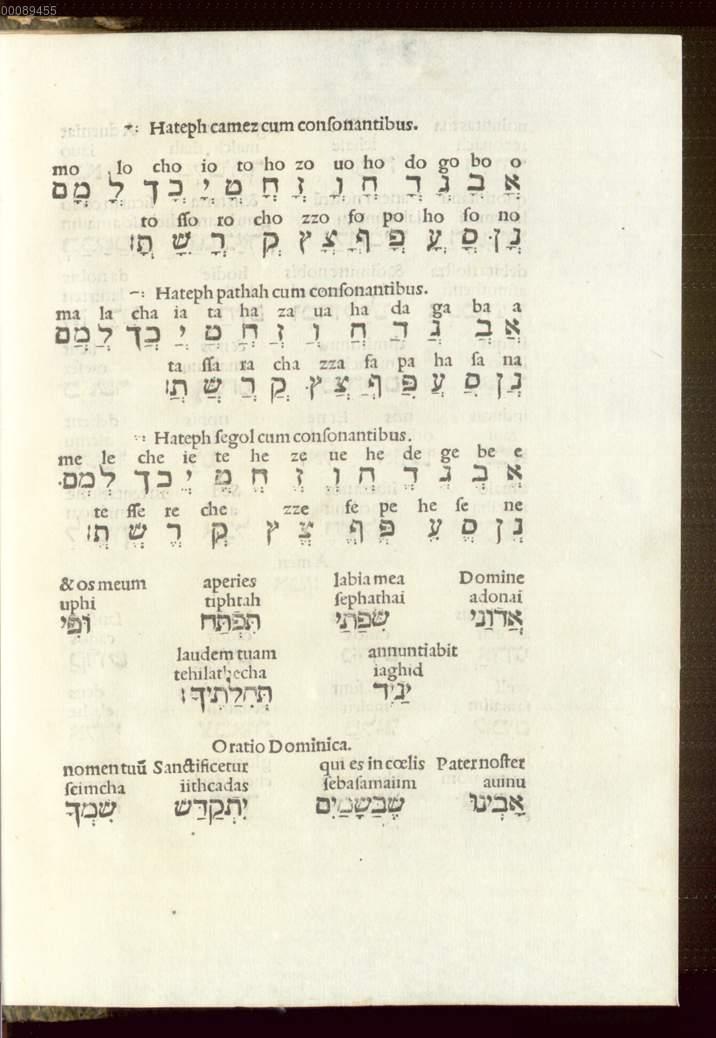 00089455
Hateph camez cum conſonantibus.
mo lo cho io to ho zo uo ho do go bo o
אֳ בֳ גֳ דֳ הֳ וֳ זֳ חֳ טֳ יֳ כֳ ךֳ לֳ מֳ ם
to ſſo ro cho zzo fo po ho ſo no
נֳ ן סֳ עֳ פֳּ ףֳ צֳ ץ קֳ רֳ שֳׁ תֳּ׃
Hateph pathah cum conſonantibus.
ma la cha ia ta ha za ua ha da ga ba a
אֲ בֲ גֲ דֲ הֲ וֲ זֲ חֲ טֲ יֲ כֲ ךֲ לֲ מֲ ם
ta ſſa ra cha zza fa pa ha ſa na
נֲ ן סֲ עֲ פֲּ ףֲ צֲ ץ קֲ רֲ שֲׁ תֲּ׃
Hateph ſegol cum conſonantibus.
me le che ie te he ze ue he de ge be e
אֱ בֱ גֱ דֱ הֱ וֱ זֱ חֱ טֱ יֱ כֱ ךֱ לֱ מֱ ם
te ſſe re che zze fe pe he ſe ne
נֱ ן סֱ עֱ פֱּ ףֱ צֱ ץ קֱ רֱ שֱׁ תֱּ׃
& os meum aperies labia mea Domine
uphi tiphtah ſephathai adonai
אֲדוֹנַי שִׂפָתַי תִּפְתַּח וּפִּי
laudem tuam annuntiabit
tehilathecha iaghid
יַגִּיד תְּהִלָתֶיךָ׃
Oratio Dominica.
nomen tuū Sanctificetur qui es in cœlis Pater noſter
ſcimcha iithcadas ſebaſamaiim auinu
אָבִינוּ שֶׁבַשָׁמַיִם יִתְקַדַּשׁ שִׁמְךָ